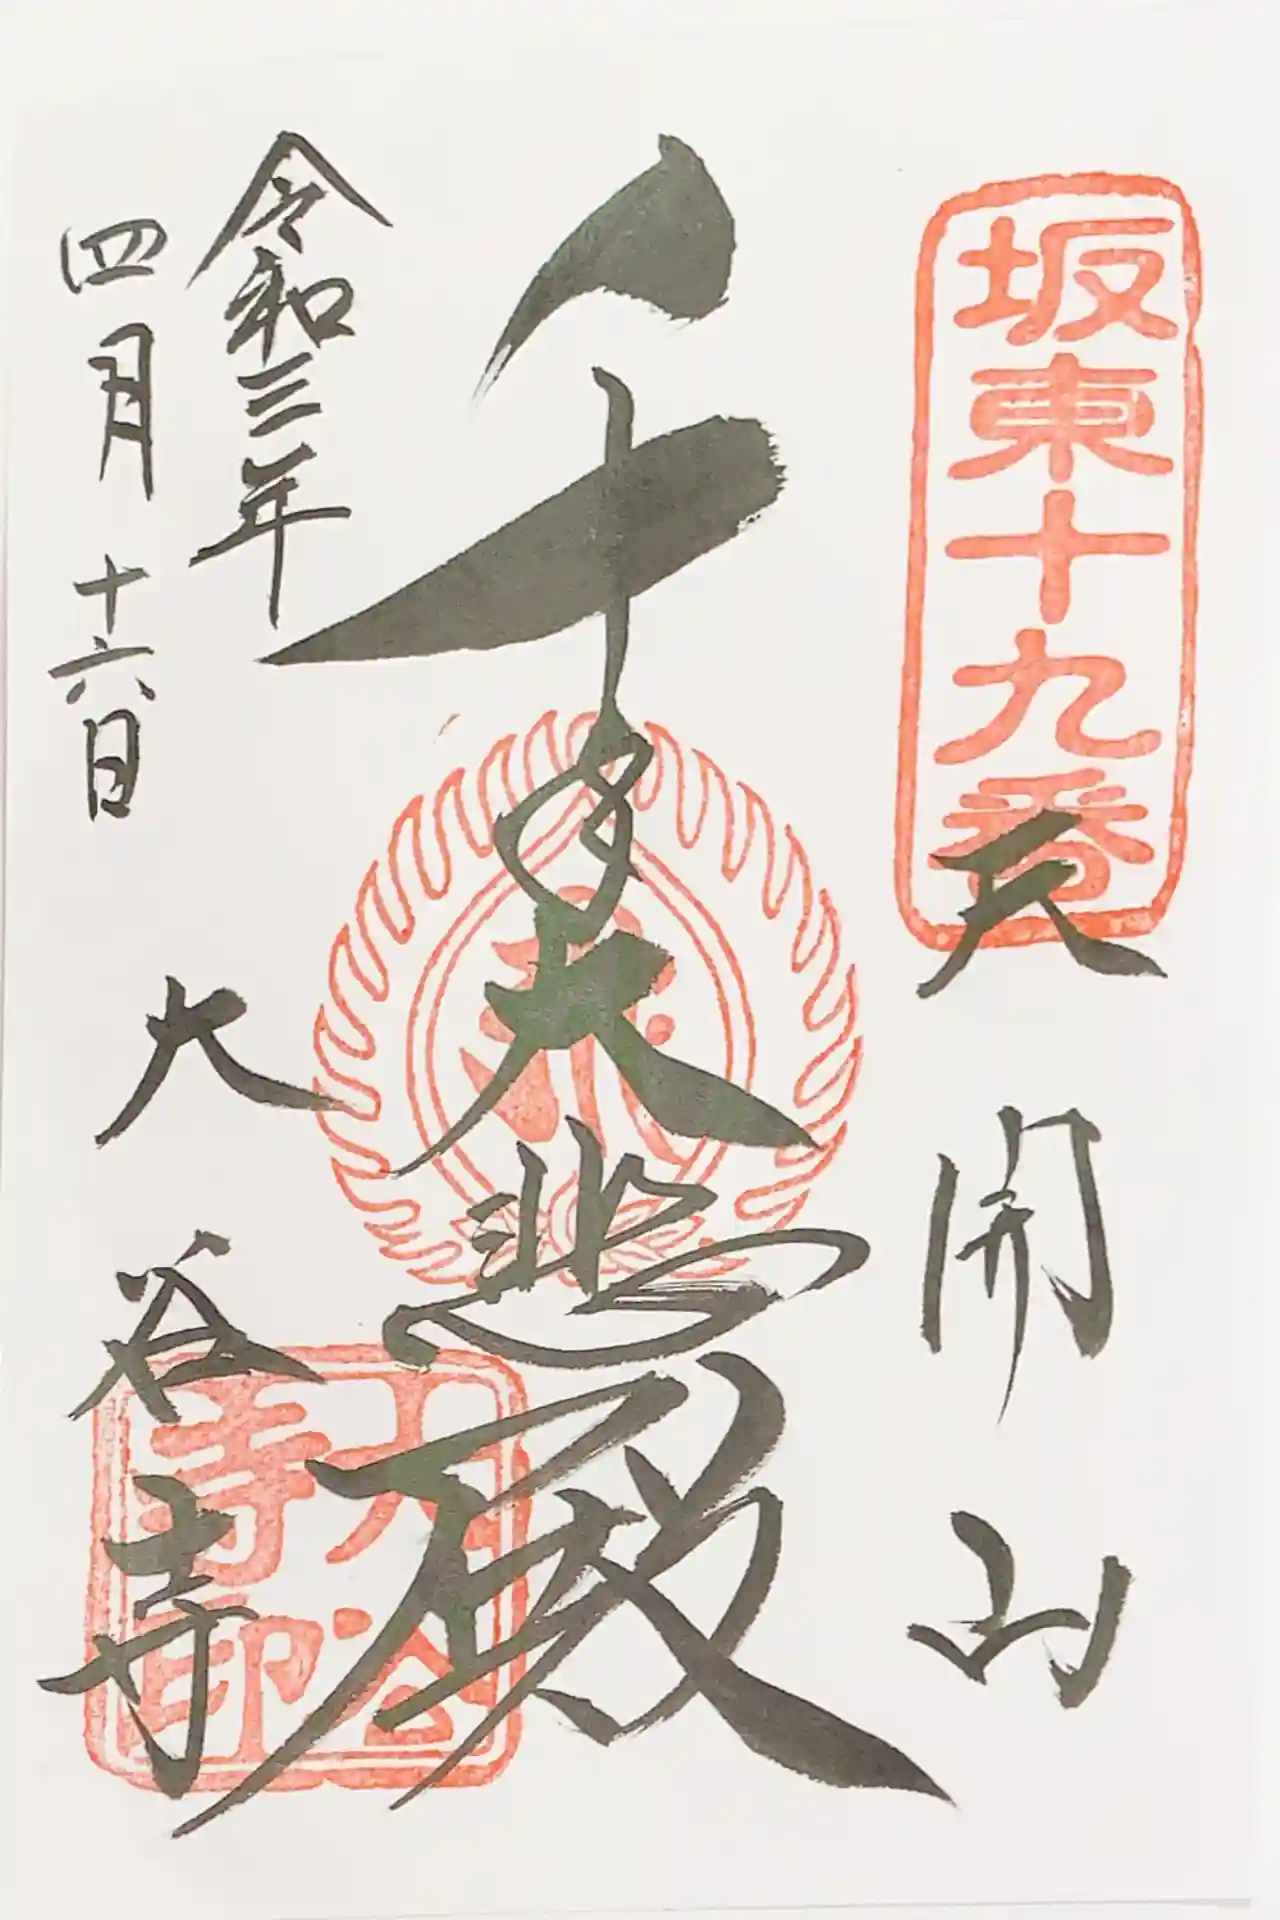 坂東十九番
天開山
千手大悲殿
令和三年
四月十六日
大谷寺
大谷寺印